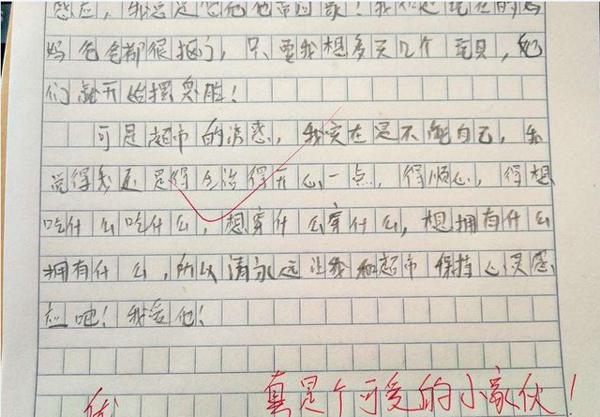 感应，我总是把他带回家！我
妈爸爸都很抠门，只要我想多买几个玩具，他
们就开始摆臭脸！
可是超市的诱惑，我实在是不能自己，我
觉得我还是得生活得开心一点，得顺心，得想
吃什么吃什么，想穿什么穿什么，想拥有什么
拥有什么，所以请永远让我和超市保持心灵感
应吧！我爱他！
真是个可爱的小家伙！